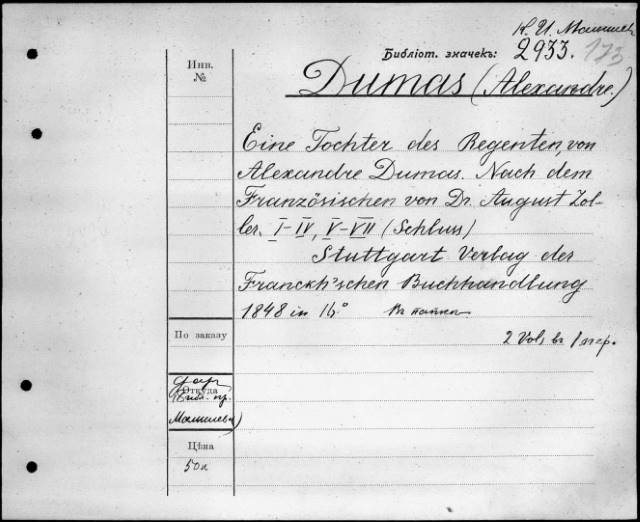 Н. И. Малышев
Библіот. значекъ: 2933. 173
Инв.
№
Dumas (Alexandre.)
Eine Tochter des Regenten, von
Alexandre Dumas. Nach dem
Französischen von Dr. August Zol-
ler. I-IV, V-VII (Schluss)
Stuttgart Verlag der
Franckh'schen Buchhandlung
1848 in 16°
По заказу
2 Vol, въ 1 пер.
дар
Откуда
Цѣна
50к